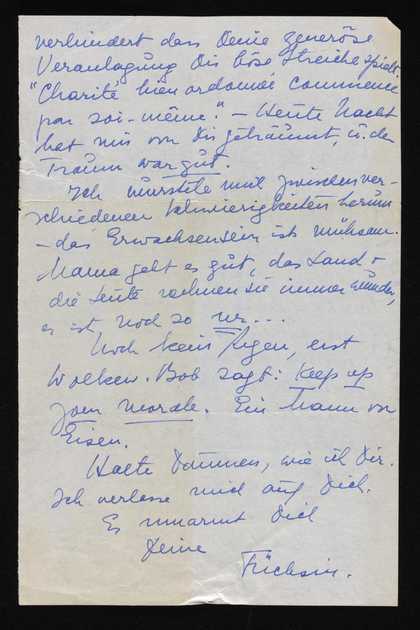 verhindert dass Deine generöse
Veranlagung Dir böse Streiche spielt.
"Charité bien ordonnée commence
par soi-même." – Heute Nacht
hat mir von Dir geträumt, u. der
Traum war gut.
Ich wurstle mich zwischen ver-
schiedenen Schwierigkeiten herum
– das Erwachsensein ist mühsam.
Mama geht es gut, das Land +
die Leute nehmen sie immer wunder,
es ist noch so neu...
Noch kein Regen, erst
Wolken. Bob sagt: Keep up
your morale. Ein Mann von
Eisen.
Halte Daumen, wie ich Dir.
Ich verlasse mich auf Dich.
Es umarmt Dich
Deine
Füchsin.